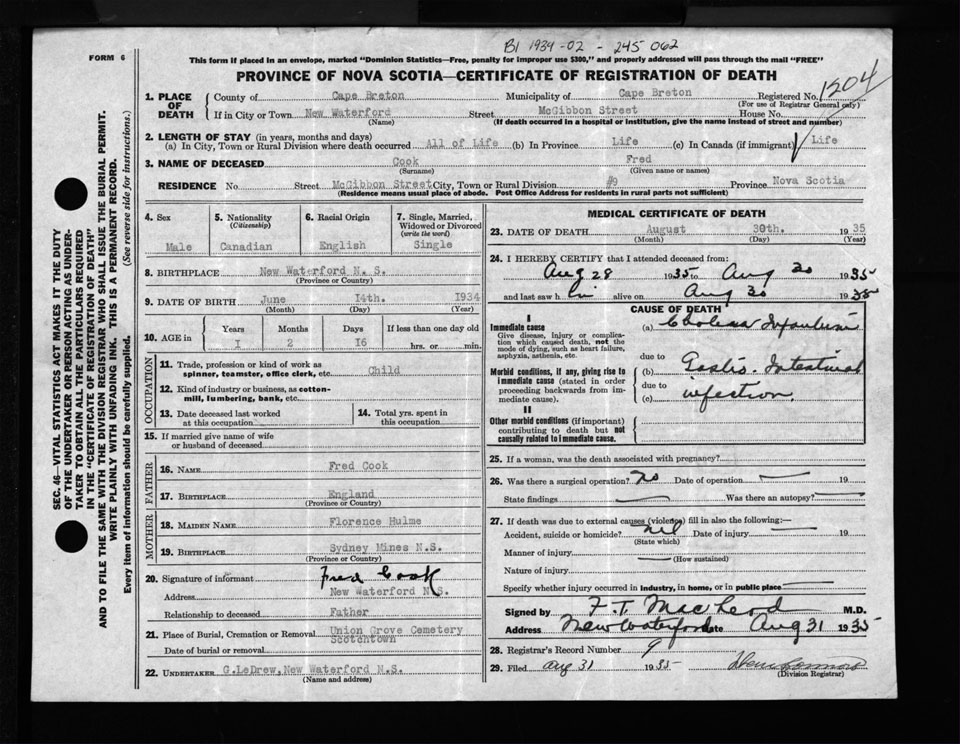 B1 1934-02 - 245 062
FORM 6
This form if placed in an envelope, marked "Dominion Statistics—Free, penalty for improper use $300," and properly addressed will pass through the mail "FREE"
PROVINCE OF NOVA SCOTIA—CERTIFICATE OF REGISTRATION OF DEATH
1204
SEC. 46—VITAL STATISTICS ACT MAKES IT THE DUTY
OF THE UNDERTAKER OR PERSON ACTING AS UNDER-
TAKER TO OBTAIN ALL THE PARTICULARS REQUIRED
IN THE "CERTIFICATE OF REGISTRATION OF DEATH"
AND TO FILE THE SAME WITH THE DIVISION REGISTRAR WHO SHALL ISSUE THE BURIAL PERMIT.
WRITE PLAINLY WITH UNFADING INK. THIS IS A PERMANENT RECORD.
Every item of information should be carefully supplied. (See reverse side for instructions.)
1. PLACE OF DEATH County of Cape Breton Municipality of Cape Breton Registered No.
(For use of Registrar General only)
If in City or Town New Waterford Street McGibbon Street House No.
(Name) (If death occurred in a hospital or institution, give the name instead of street and number)
2. LENGTH OF STAY (in years, months and days)
(a) In City, Town or Rural Division where death occurred All of Life (b) In Province Life (c) In Canada (if immigrant) Life
3. NAME OF DECEASED Cook Fred
(Surname) (Given name or names)
RESIDENCE No. Street McGibbon Street City, Town or Rural Division #9 Province Nova Scotia
(Residence means usual place of abode. Post Office Address for residents in rural parts not sufficient)
4. Sex Male
5. Nationality (Citizenship) Canadian
6. Racial Origin English
7. Single, Married, Widowed or Divorced (write the word) Single
8. BIRTHPLACE New Waterford N. S.
(Province or Country)
9. DATE OF BIRTH June 14th. 1934
(Month) (Day) (Year)
10. AGE in Years 1 Months 2 Days 16 If less than one day old hrs. or min.
OCCUPATION
11. Trade, profession or kind of work as spinner, teamster, office clerk, etc. Child
12. Kind of industry or business, as cotton-mill, lumbering, bank, etc.
13. Date deceased last worked at this occupation
14. Total yrs. spent in this occupation
15. If married give name of wife or husband of deceased
FATHER
16. NAME Fred Cook
17. BIRTHPLACE England
(Province or Country)
MOTHER
18. MAIDEN NAME Florence Hulme
19. BIRTHPLACE Sydney Mines N.S.
(Province or Country)
20. Signature of informant Fred Cook
Address New Waterford N.S.
Relationship to deceased Father
21. Place of Burial, Cremation or Removal Union Grove Cemetery Scotchtown
Date of burial or removal
22. UNDERTAKER G.LeDrew, New Waterford N.S.
(Name and address)
MEDICAL CERTIFICATE OF DEATH
23. DATE OF DEATH August 30th. 1935
(Month) (Day) (Year)
24. I HEREBY CERTIFY that I attended deceased from:
Aug 28 1935 to Aug 30 1935
and last saw h im alive on Aug 30 1935
CAUSE OF DEATH
I
Immediate cause
Give disease, injury or complication which caused death, not the mode of dying, such as heart failure, asphyxia, asthenia, etc.
(a) Cholera Infantum
due to
Morbid conditions, if any, giving rise to immediate cause (stated in order proceeding backwards from immediate cause).
(b) Gastro. Intestinal
due to
(c) infection
II
Other morbid conditions (if important) contributing to death but not causally related to immediate cause.
25. If a woman, was the death associated with pregnancy?
26. Was there a surgical operation? no Date of operation 19
State findings Was there an autopsy?
27. If death was due to external causes (violence) fill in also the following:—
Accident, suicide or homicide? nil Date of injury 19
(State which)
Manner of injury
(How sustained)
Nature of injury
Specify whether injury occurred in industry, in home, or in public place
Signed by F.T. MacLeod M.D.
Address New Waterford Date Aug 31 1935
28. Registrar's Record Number 9
29. Filed Aug 31 1935
(Division Registrar)